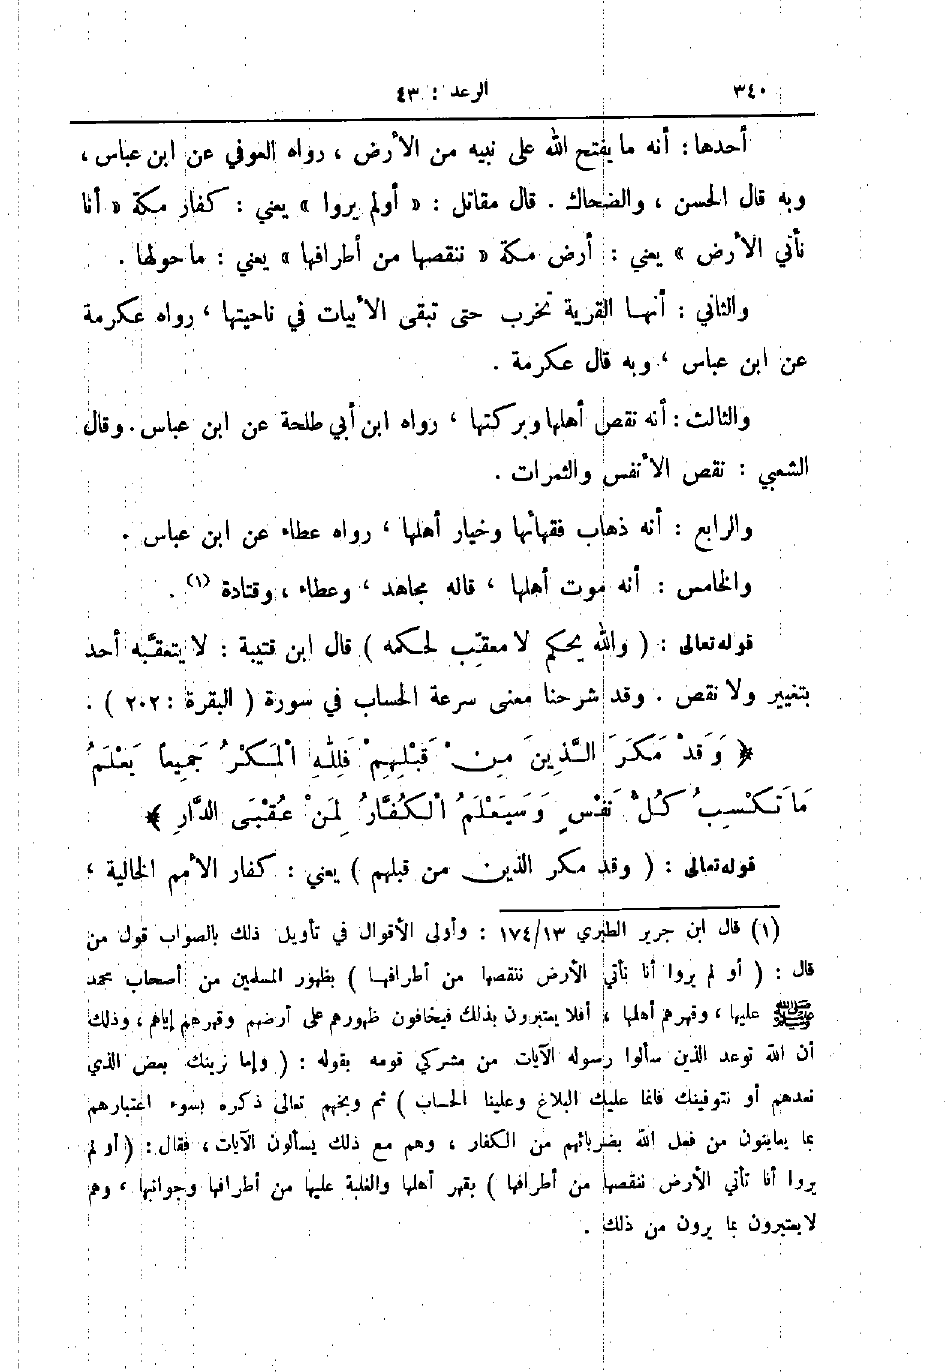 ٣٤٠ الرعد : ٤٣
أحدها : أنه ما يفتح الله على نبيه من الأرض ، رواه العوفي عن ابن عباس ،
وبه قال الحسن ، والضحاك . قال مقاتل : « أولم يروا » يعني : كفار مكة « أنا
نأتي الأرض » يعني : أرض مكة « ننقصها من أطرافها » يعني : ما حولها .
والثاني : أنهـا القرية تخرب حتى تبقى الأبيات في ناحيتها ، رواه عكرمة
عن ابن عباس ، وبه قال عكرمة .
والثالث : أنه نقص أهلها وبركتها ، رواه ابن أبي طلحة عن ابن عباس . وقال
الشعبي : نقص الأنفس والثمرات .
والرابع : أنه ذهاب فقهائها وخيار أهلها ، رواه عطاء عن ابن عباس .
والخامس : أنه موت أهلها ، قاله مجاهد ، وعطاء ، وقتادة (١) .
قوله تعالى : ( والله يحكم لا معقِّب لحكمه ) قال ابن قتيبة : لا يتعقَّبه أحد
بتغيير ولا نقص . وقد شرحنا معنى سرعة الحساب في سورة ( البقرة : ٢٠٢ ) .
﴿ وَقَدْ مَكَرَ الَّذِينَ مِنْ قَبْلِهِمْ فَلِلَّهِ الْمَكْرُ جَمِيعاً يَعْلَمُ
مَا تَكْسِبُ كُلُّ نَفْسٍ وَسَيَعْلَمُ الْكُفَّارُ لِمَنْ عُقْبَى الدَّارِ ﴾
قوله تعالى : ( وقد مكر الذين من قبلهم ) يعني : كفار الأمم الخالية ،
(١) قال ابن جرير الطبري ١٧٤/١٣ : وأولى الأقوال في تأويل ذلك بالصواب قول من
قال : ( أو لم يروا أنا نأتي الأرض ننقصها من أطرافهـا ) بظهور المسلمين من أصحاب محمد
ﷺ عليها ، وقهرهم أهلها ، أفلا يعتبرون بذلك فيخافون ظهورهم على أرضهم وقهرهم إياهم ، وذلك
أن الله توعد الذين سألوا رسوله الآيات من مشركي قومه بقوله : ( وإما نرينك بعض الذي
نعدهم أو نتوفينك فانما عليك البلاغ وعلينا الحساب ) ثم وبخهم تعالى ذكره بسوء اعتبارهم
بما يعاينون من فعل الله بضربائهم من الكفار ، وهم مع ذلك يسألون الآيات ، فقال : ( أو لم
يروا أنا نأتي الأرض ننقصها من أطرافها ) بقهر أهلها والغلبة عليها من أطرافها وجوانبها ، وهم
لا يعتبرون بما يرون من ذلك .